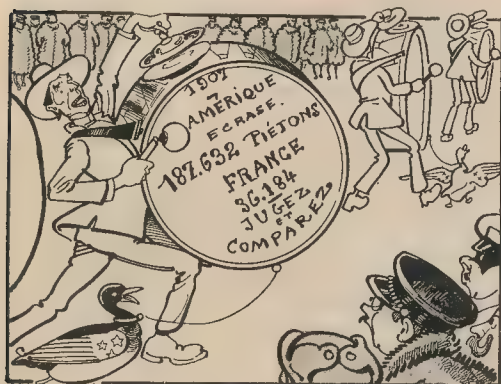 1907
AMÉRIQUE
ECRASE.
187.632 PIÉTONS
FRANCE
36.184
JUGEZ
ET
COMPAREZ